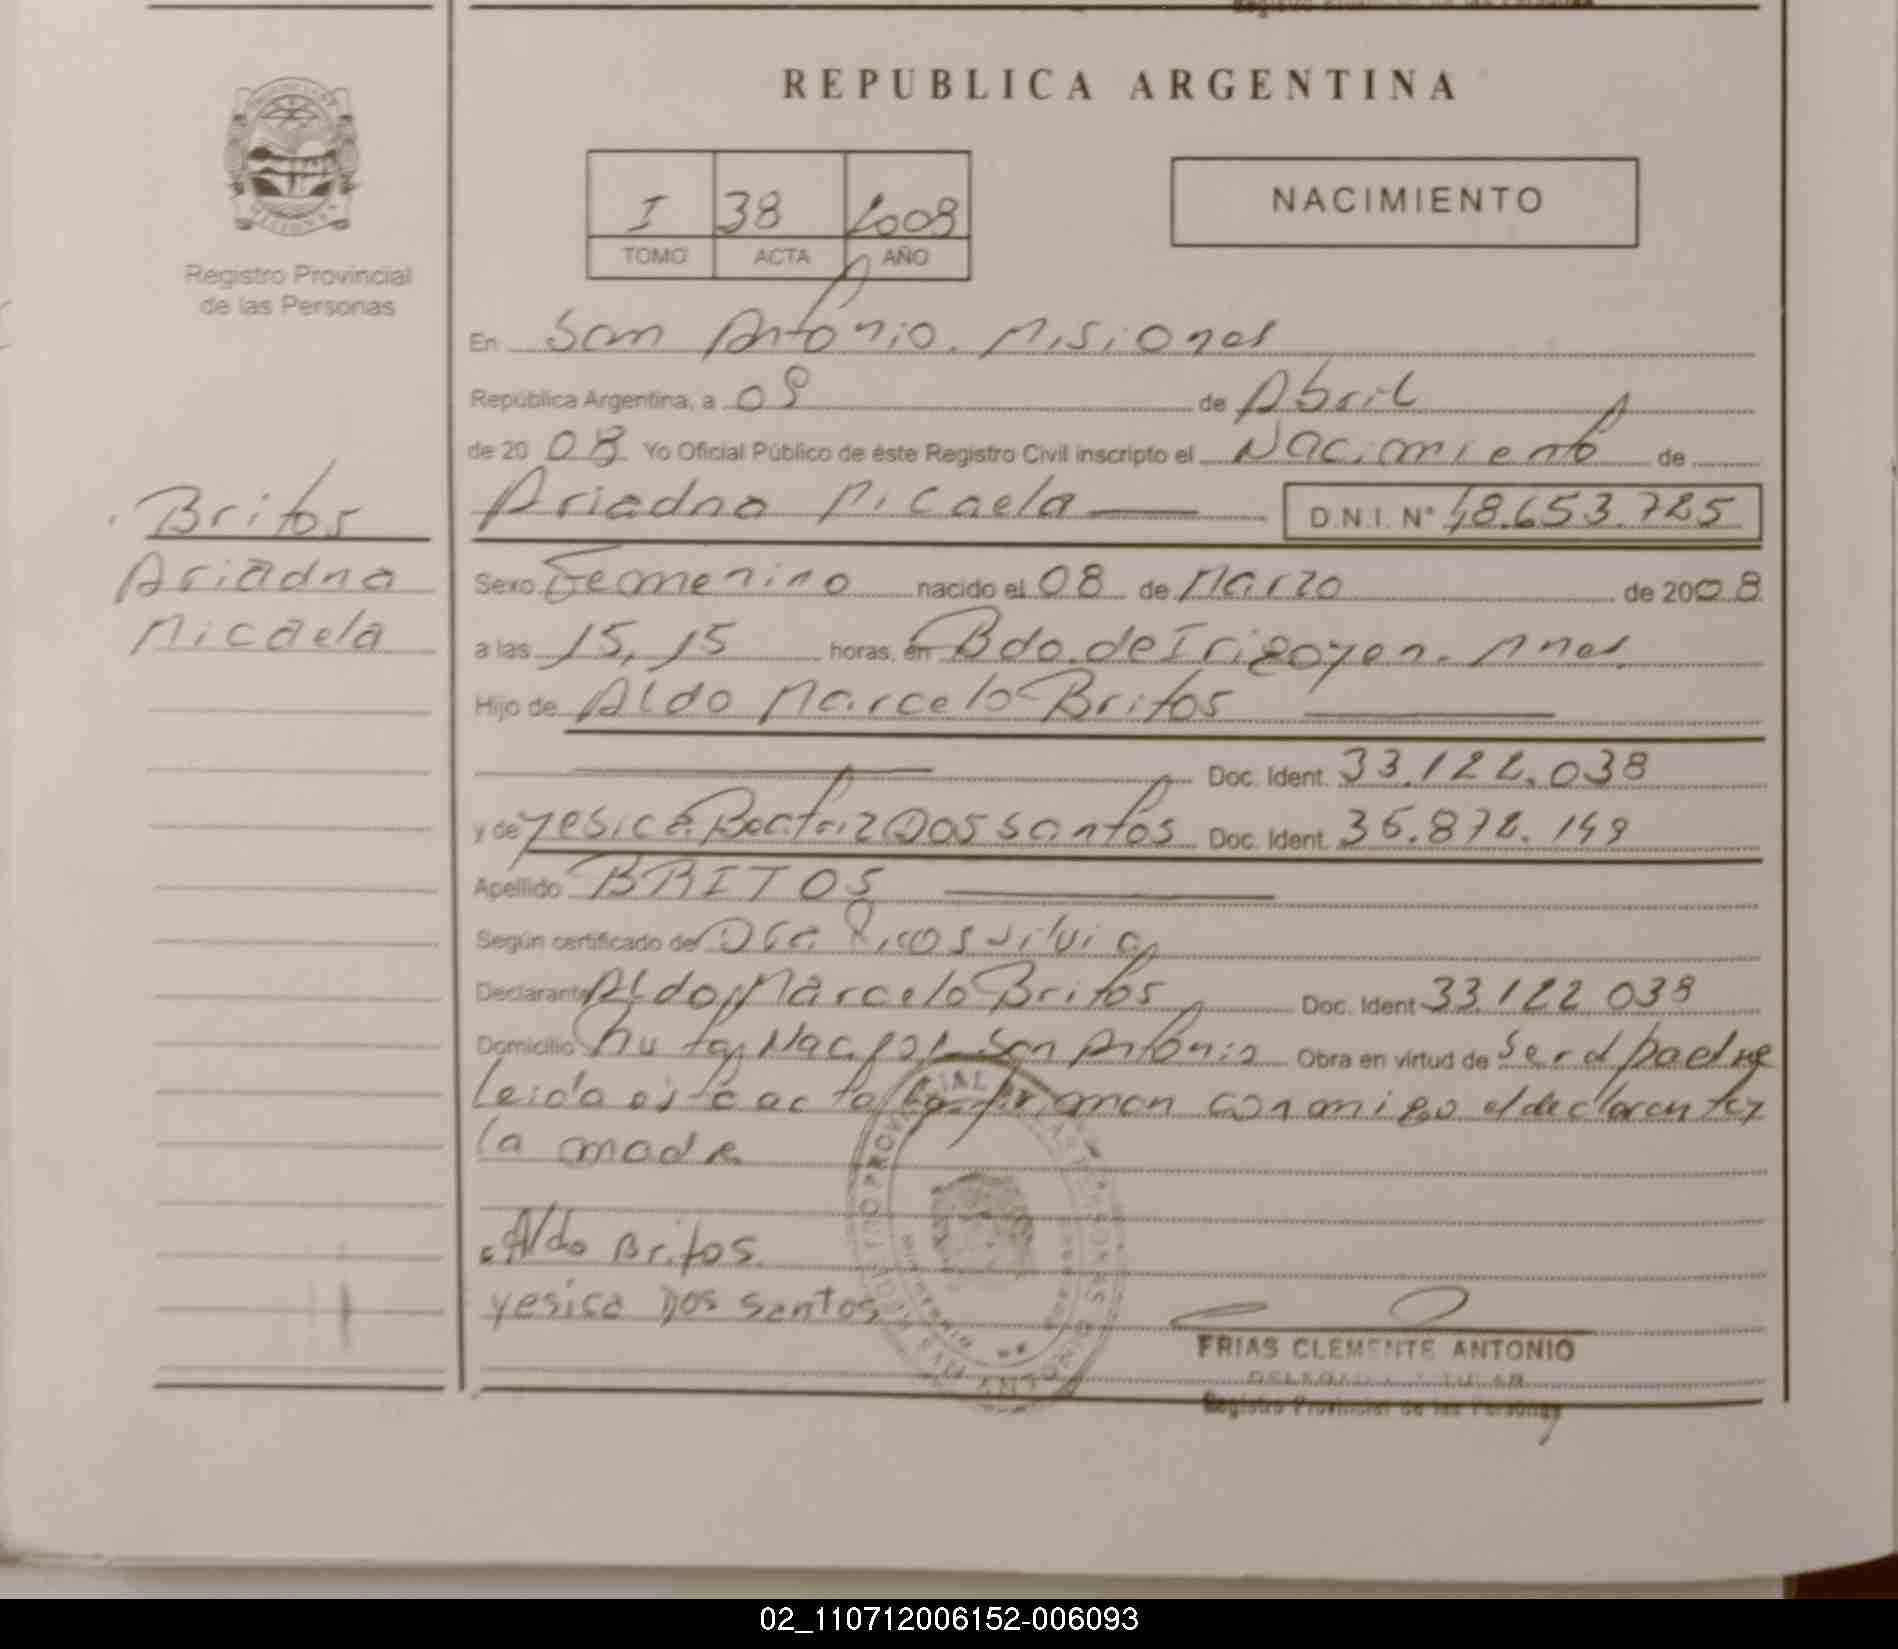 REPUBLICA ARGENTINA
I 38 2008
TOMO ACTA AÑO
NACIMIENTO
Registro Provincial
de las Personas
En San Antonio. Misiones
República Argentina, a 08 de Abril
de 2008 Yo Oficial Público de éste Registro Civil inscripto el Nacimiento de
Ariadna Micaela D.N.I. N° 48.653.725
Britos
Ariadna
Micaela
Sexo Femenino nacido el 08 de Marzo de 2008
a las 15,15 horas, en Bdo. de Irigoyen. Mnes.
Hijo de Aldo Marcelo Britos
Doc. Ident. 33.122.038
y de Yesica Beatriz Dos santos Doc. Ident. 36.872.149
Apellido BRITOS
Según certificado de Silvia
Declarante Aldo Marcelo Britos Doc. Ident 33.122.038
Domicilio Ruta Nac. San Antonio Obra en virtud de Ser el padre
Leida esta acta la firman conmigo el declarante y
la madre
Aldo Britos.
yesica Dos santos
FRIAS CLEMENTE ANTONIO
Registro Provincial de las Personas
02_110712006152-006093